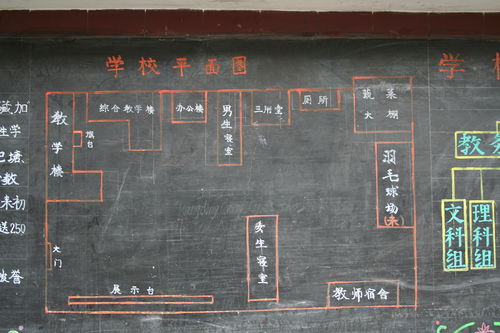 学校平面图
学
藏加
生学
巴塘
数
未初
送250
誉
教学楼
旗台
综合教学楼
办公楼
男生寝室
厕所
蔬菜大棚
羽毛球场(未)
大门
女生寝室
展示台
教师宿舍
教务
文科组
理科组